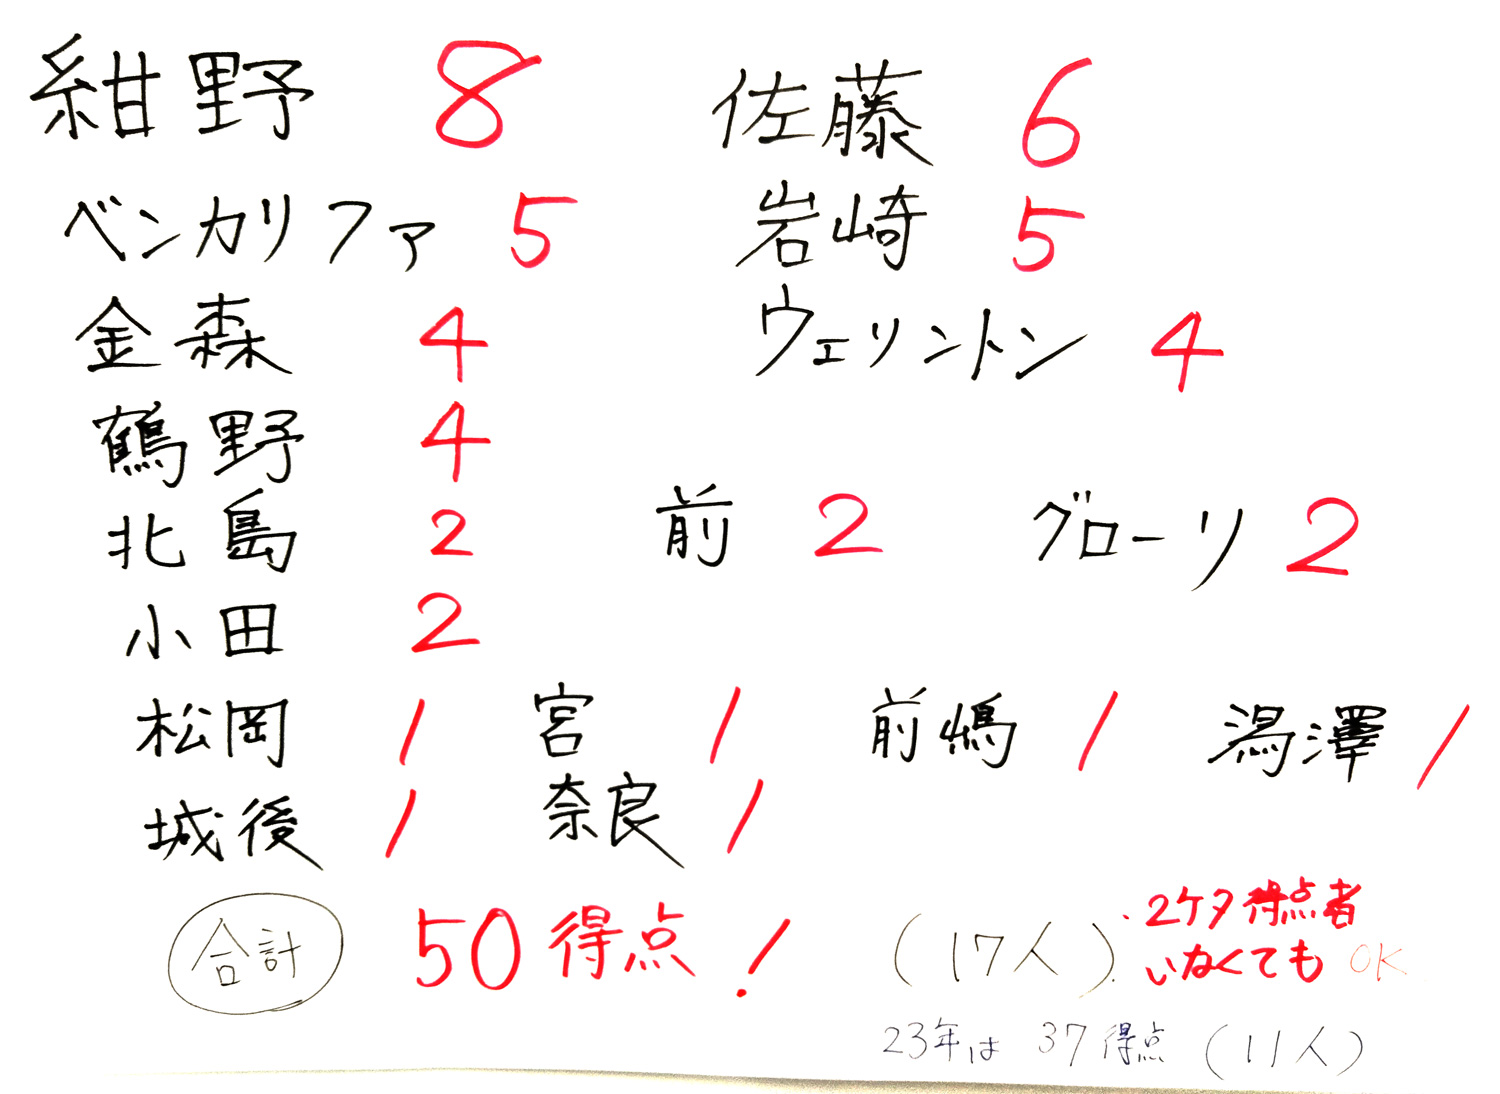 紺野 8 佐藤 6
ベンカリファ 5 岩崎 5
金森 4 ウェリントン 4
鶴野 4
北島 2 前 2 グローリ 2
小田 2
松岡 1 宮 1 前嶋 1 潟澤 1
城後 1 奈良 1
合計 50得点! (17人)
・2ケタ得点者
いなくても OK
23年は 37得点 (11人)